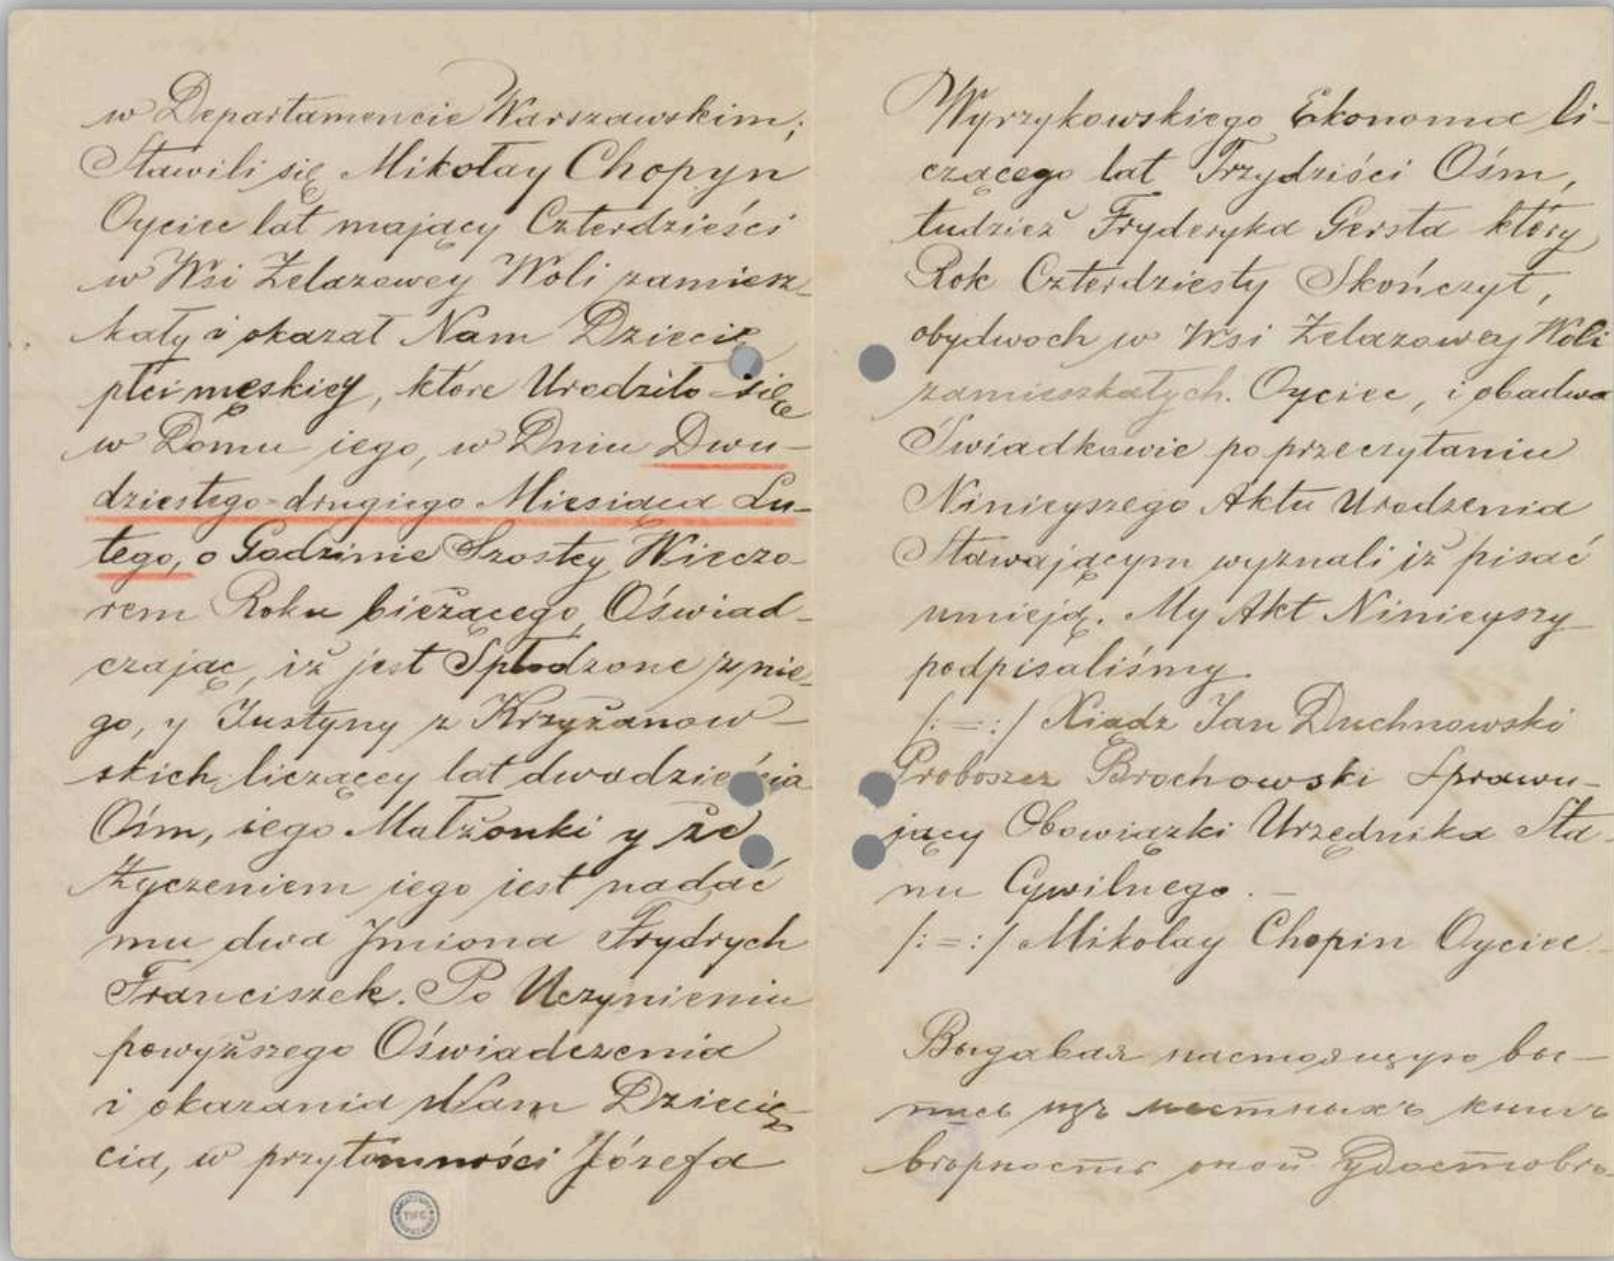 w Departamencie Warszawskim;
Stawili się Mikołay Chopyn
Oyciec lat mający Czterdzieści
w Wsi Żelazowey Woli zamiesz-
kały i okazał Nam Dziecię
płci męskiey, które Urodziło się
w Domu iego, w Dniu Dwu-
dziestego-drugiego Miesiąca Lu-
tego, o Godzinie Szostey Wieczo-
rem Roku bieżącego, Oświad-
czając, iż jest Spłodzone z nie-
go, y Justyny z Krzyżanow-
skich, liczącey lat dwadzieścia
Ośm, iego Małżonki y że
Życzeniem iego iest nadać
mu dwa Jmiona Frydrych
Franciszek. Po Uczynieniu
powyższego Oświadczenia
i okazania Nam Dziecię-
cia, w przytomności Józefa
Wyrzykowskiego Ekonoma li-
czącego lat Trzydziści Ośm,
tudzież Fryderyka Gersta który
Rok Czterdziesty Skończył,
obydwoch w Wsi Żelazowey Woli
zamieszkałych. Oyciec, i obadwa
Świadkowie po przeczytaniu
Ninieyszego Aktu Urodzenia
Stawającym wyznali iż pisać
umieją. My Akt Ninieyszy
podpisaliśmy.
/:=:/ Xiądz Jan Duchnowski
Proboszcz Brochowski Sprawu-
jący Obowiązki Urzędnika Sta-
nu Cywilnego. —
/:=:/ Mikołay Chopin Oyciec
настоящую вы-
пись изъ местныхъ книгъ
верность оной удостове-